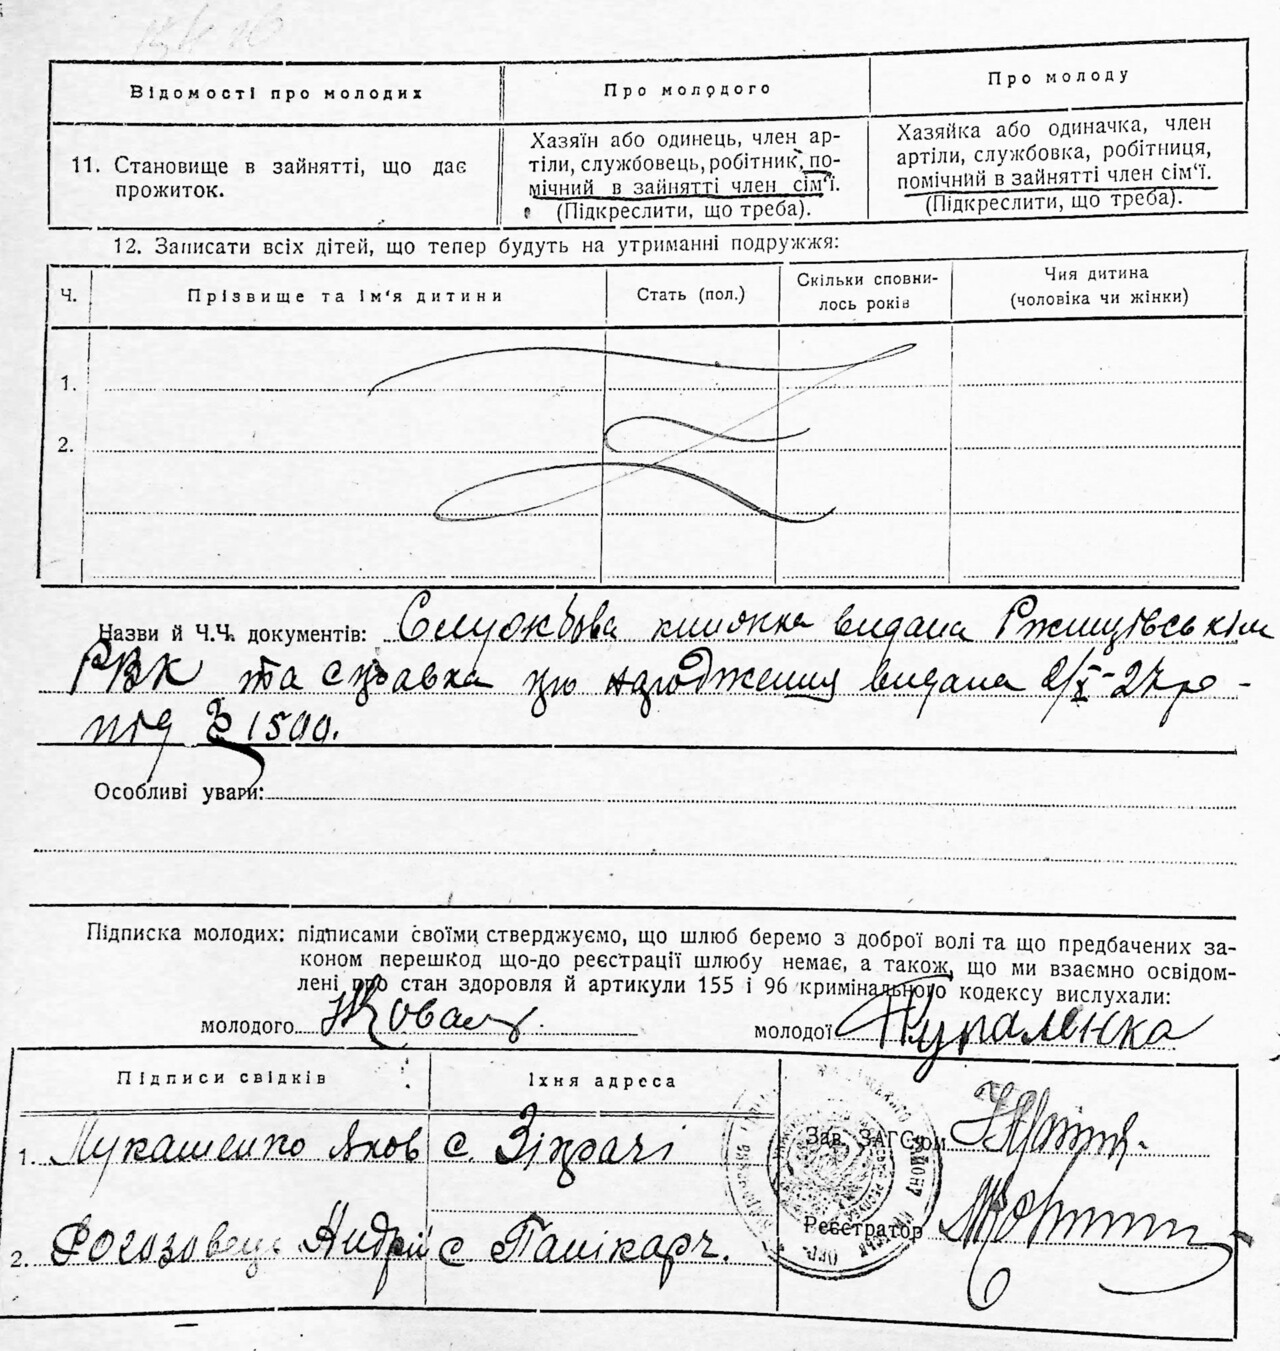 Відомості про молодих
Про молодого
Про молоду
11. Становище в зайнятті, що дає
прожиток.
Хазяїн або одинець, член ар-
тіли, службовець, робітник, по-
мічний в зайнятті член сім'ї.
(Підкреслити, що треба).
Хазяйка або одиначка, член
артіли, службовка, робітниця,
помічний в зайнятті член сім'ї.
(Підкреслити, що треба).
12. Записати всіх дітей, що тепер будуть на утриманні подружжя:
Ч.
Прізвище та ім'я дитини
Стать (пол.)
Скільки сповни-
лось років
Чия дитина
(чоловіка чи жінки)
1.
2.
Назви й Ч.Ч. документів: Службова книжка видана Ржищівським
РВК та справка про народження видана 2/X-27р-
під № 1500.
Особливі уваги:
Підписка молодих: підписами своїми стверджуємо, що шлюб беремо з доброї волі та що предбачених за-
коном перешкод що-до реєстрації шлюбу немає, а також, що ми взаємно освідом-
лені про стан здоровля й артикули 155 і 96 кримінального кодексу вислухали:
молодого Коваль
молодої
Підписи свідків
Їхня адреса
1. Лукашенко Яков с. Зікрачі
Зав. ЗАГС'ом
2. Рогозовець Андрій с
Реєстратор